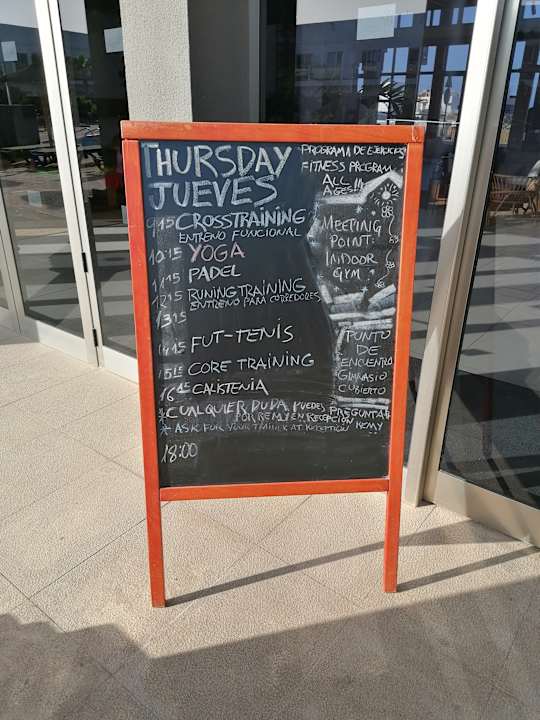 THURSDAY
JUEVES
9:15 CROSSTRAINING
ENTRENO FUNCIONAL
10:15 YOGA
11:15 PADEL
12:15 RUNING TRAINING
ENTRENO PARA CORREDORES
13:15
14:15 FUT-TENIS
15:15 CORE TRAINING
16:45 CALISTENIA
*CUALQUIER DUDA PUEDES PREGUNTAR
POR REMY EN RECEPCIÓN
* ASK FOR YOUR TRAINER AT RECEPTION REMY
18:00
PROGRAMA DE EJERCICIOS
FITNESS PROGRAM
ALL IN
AGES
MEEPING
POINT:
INDOOR
GYM
PUNTO
DE
ENCUENTRO
GIMNASIO
CUBIERTO